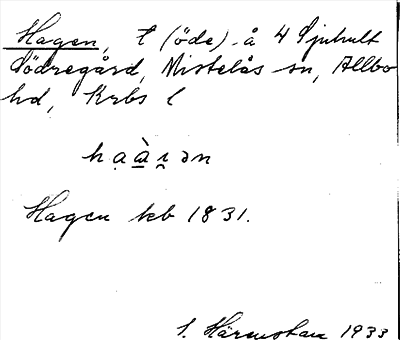 Hagen, t (öde) å 4 Sjuhult
Södregård, Mistelås sn, Allbo
hd, Krbs l
hạà̱ı̯ən
Hagen kb 1831.
1933